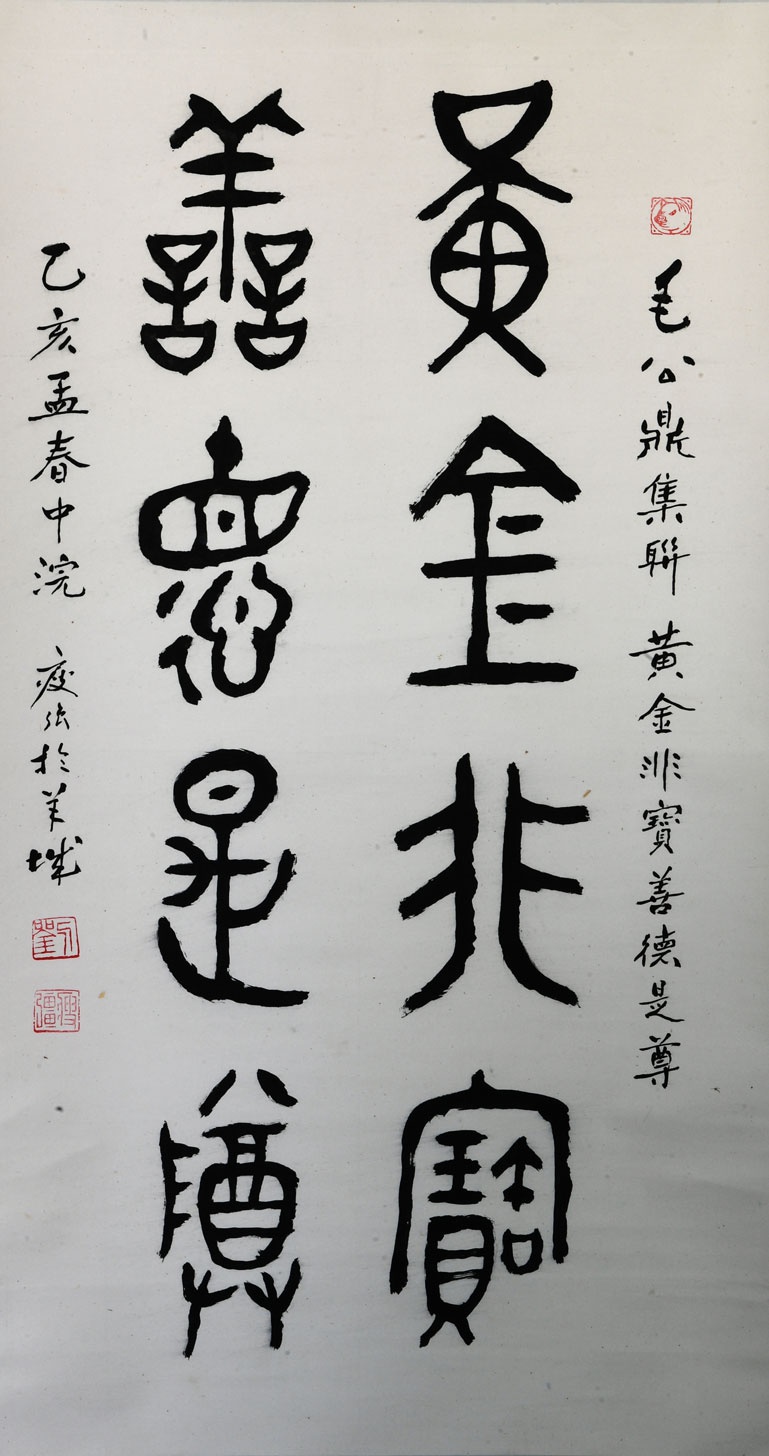 毛公鼎集聯 黃金非寶善德是尊
黃金非寶
善德是尊
乙亥孟春中浣 瘦弜於羊城
劉